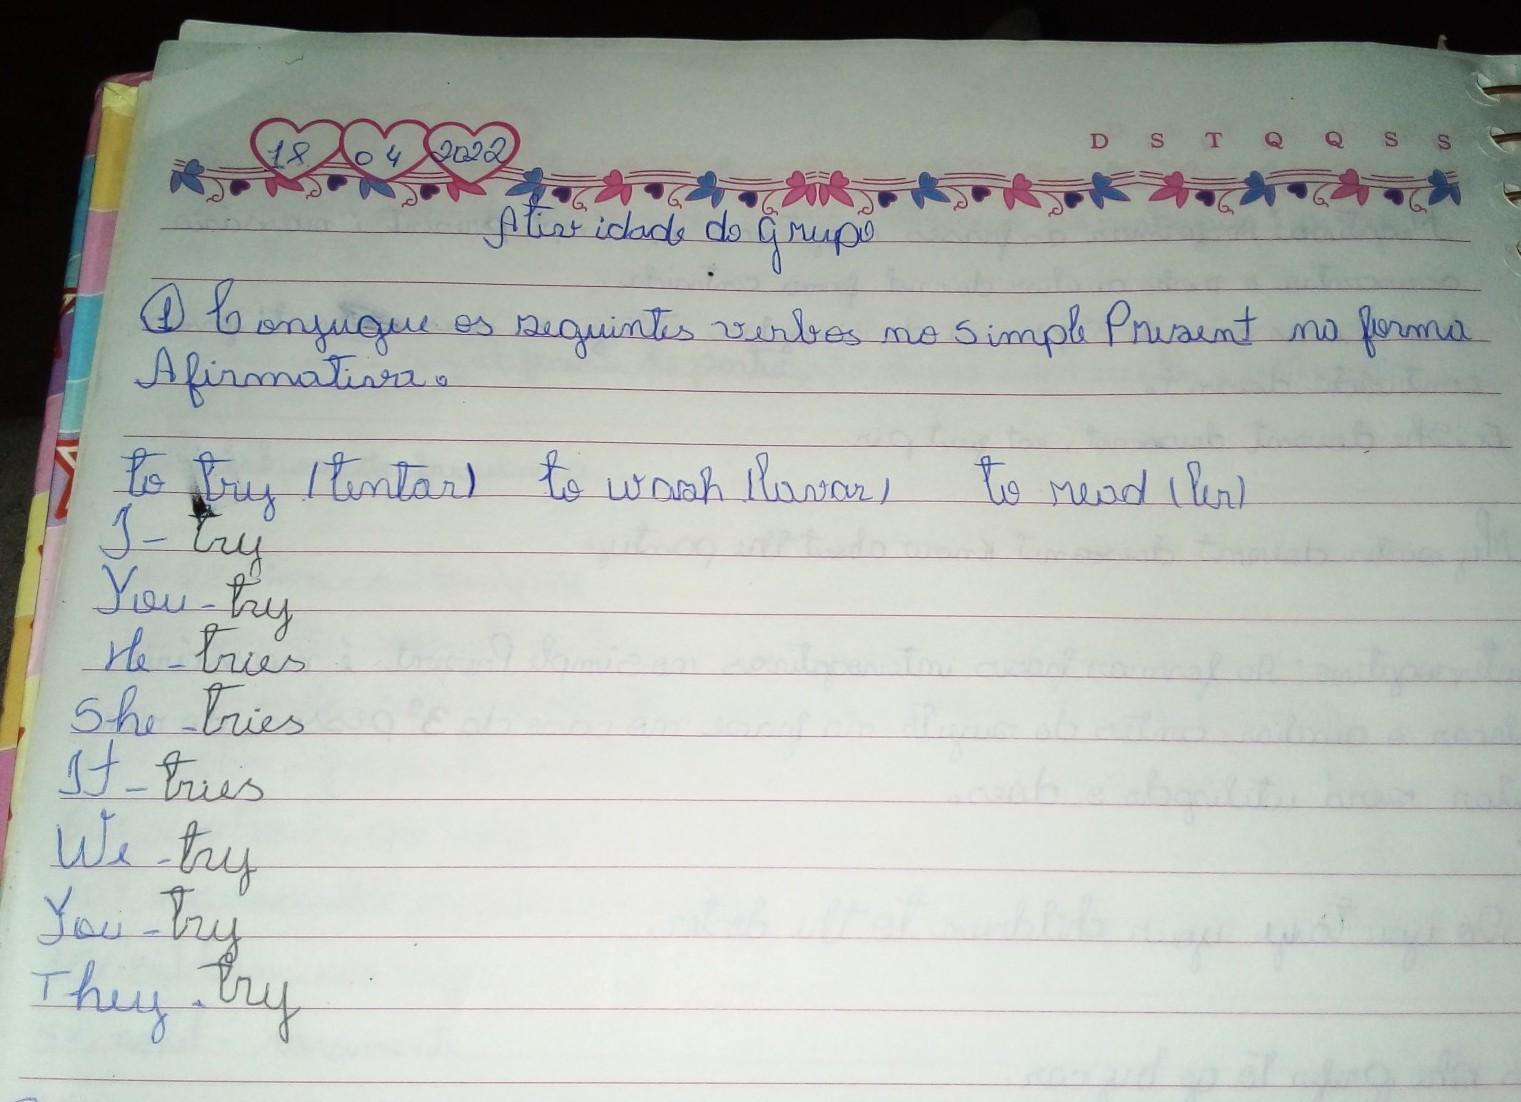 18 04 2022
D S T Q Q S S
Atividade do grupo
① Conjugue os seguintes verbos no Simple Present na forma
Afirmativa.
to try (tentar) to wash (lavar) to read (ler)
I - try
You - try
He - tries
She - tries
It - tries
We - try
You - try
They - try